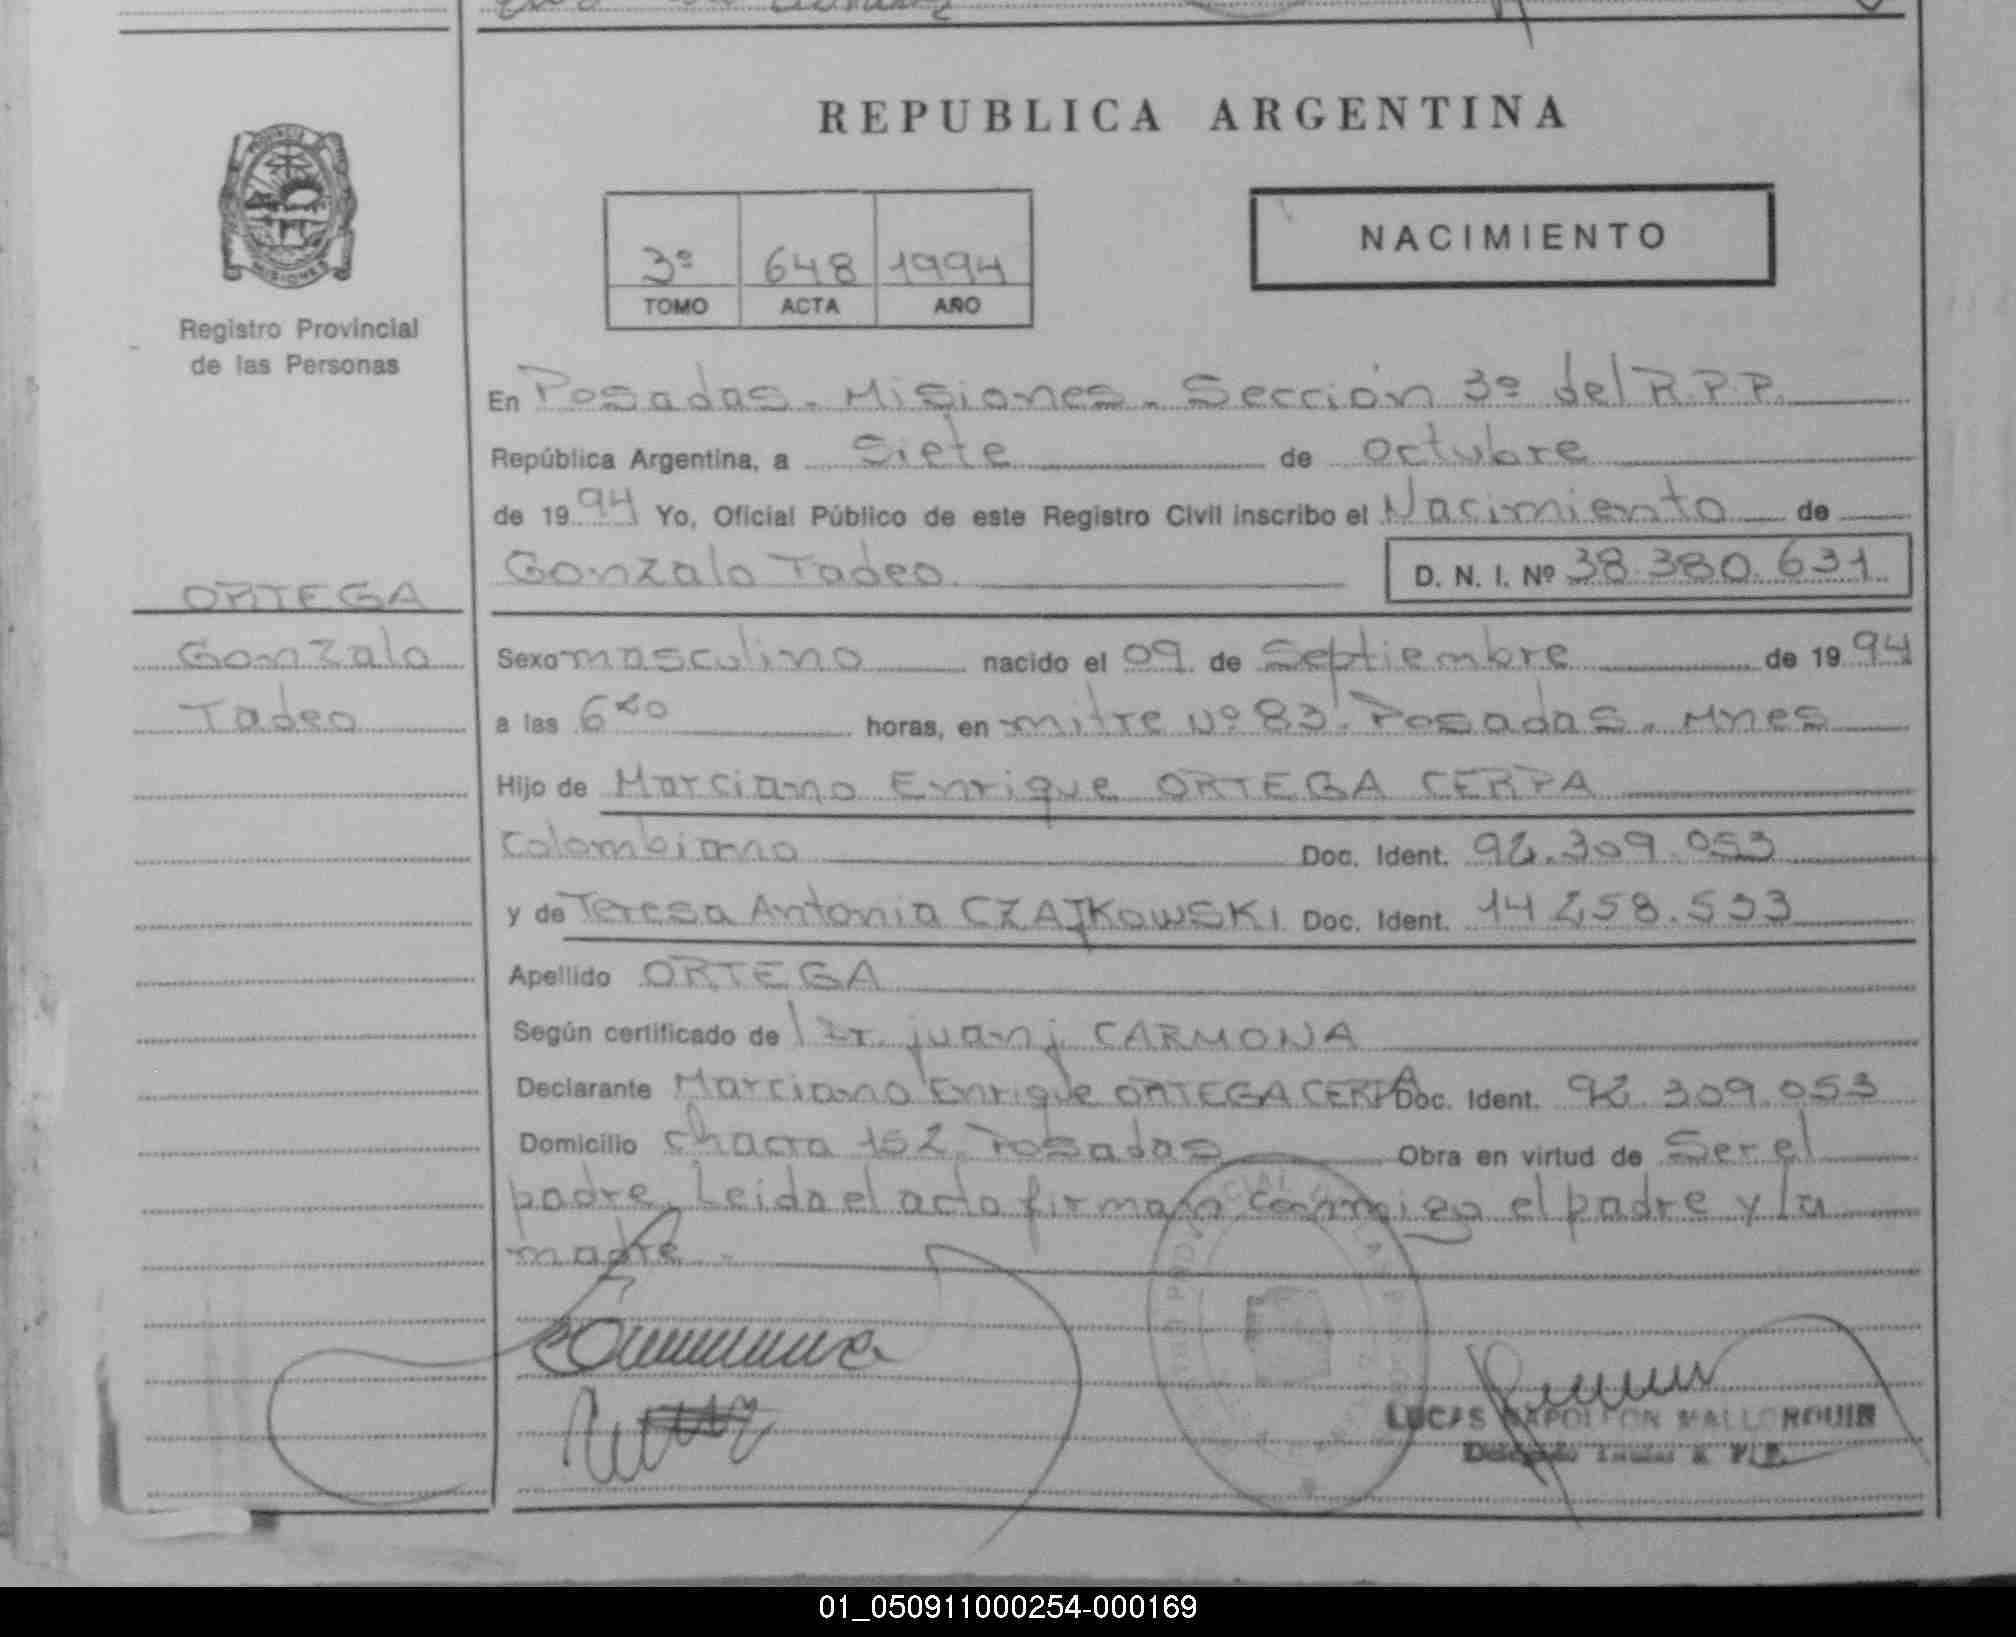 REPUBLICA ARGENTINA
NACIMIENTO
3º 648 1994
TOMO ACTA AÑO
PROVINCIA
MISIONES
Registro Provincial
de las Personas
En Posadas - Misiones - Sección 3º del R.P.P.
República Argentina, a Siete de octubre
de 1994 Yo, Oficial Público de este Registro Civil inscribo el Nacimiento de
Gonzalo Tadeo. D. N. I. Nº 38.380.631
ORTEGA
Gonzalo
Tadeo
Sexo masculino nacido el 09 de Septiembre de 1994
a las 6 horas, en mitre Nº 83. Posadas - Mnes
Hijo de Marciano Enrique ORTEGA CERPA
Colombiano Doc. Ident. 92.309.053
y de Teresa Antonia CZAJKOWSKI Doc. Ident. 14.258.533
Apellido ORTEGA
Según certificado de juan j. CARMONA
Declarante Marciano Enrique ORTEGA CERPA Doc. Ident. 92.309.053
Domicilio chacra 152 Posadas Obra en virtud de Ser el
padre. Leida el acta firman conmigo el padre y la
madre -
LUCAS NAPOLEON MALLORQUIN
01_050911000254-000169